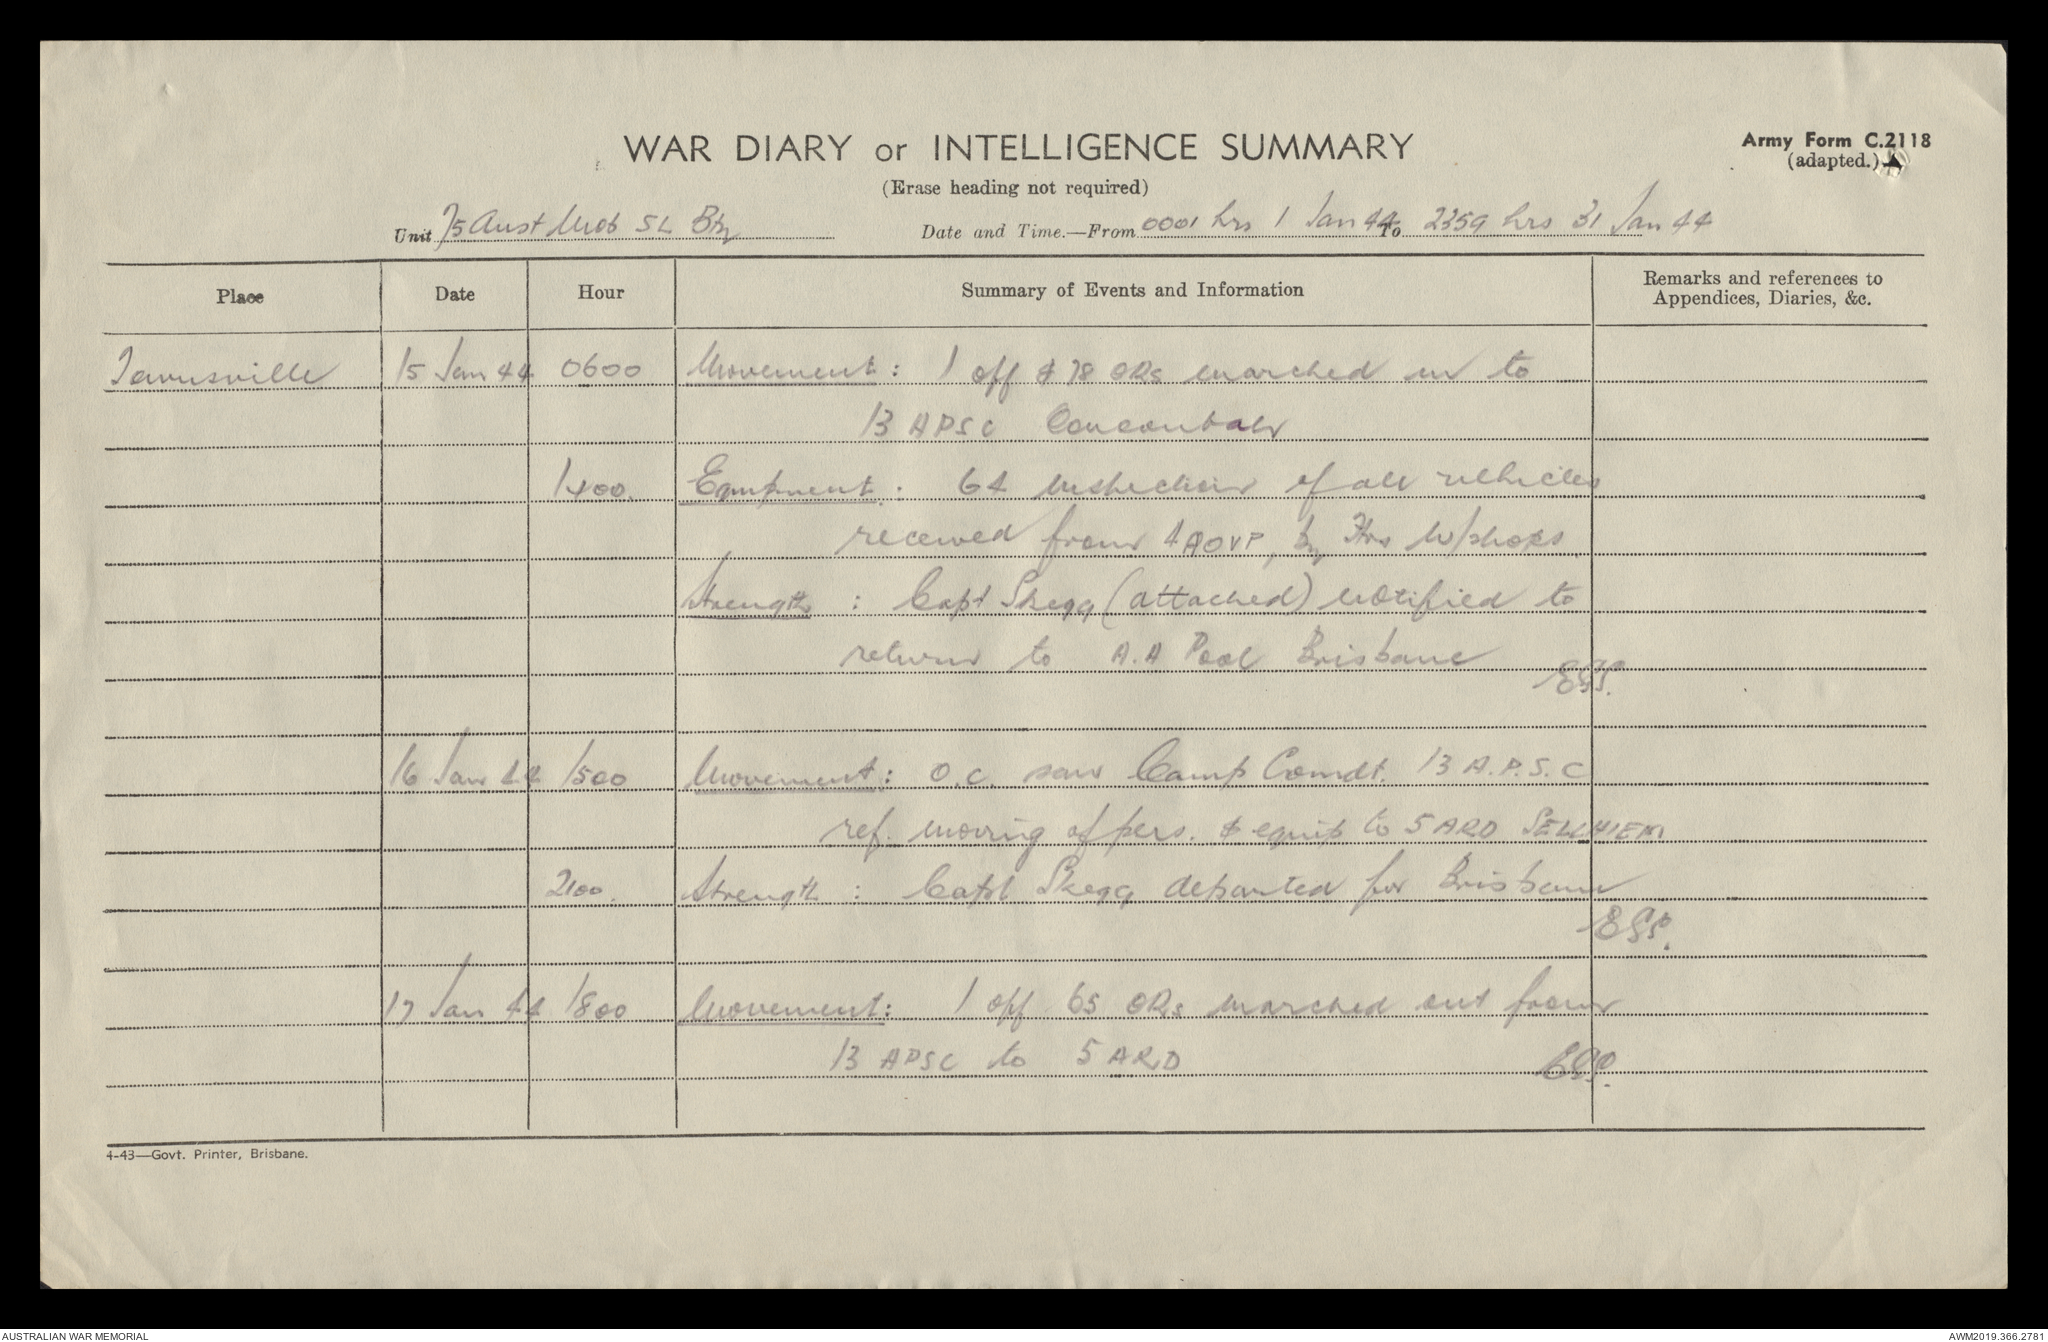 WAR DIARY or INTELLIGENCE SUMMARY
Army Form C.2118
(adapted.)
(Erase heading not required)
Unit 75 Aust Mob SL Bty Date and Time.—From 0001 hrs 1 Jan 44 To 2359 hrs 31 Jan 44
Place Date Hour Summary of Events and Information Remarks and references to
Appendices, Diaries, &c.
Townsville 15 Jan 44 0600 Movement: 1 off & 78 ORs marched in to
13 APSC
1400. Equipment: G4 inspection of all vehicles
received from 4 AOVP, by W/shops.
Strength: Capt Skegg (attached) notified to
return to A.A Pool Brisbane
16 Jan 44 1500 Movement: O.C. saw Camp Comdt. 13 A.P.S.C
ref. moving of pers. & equip to 5 ARD SELLHIEM
2100. Strength: Capt Skegg departed for Brisbane
17 Jan 44 1800 Movement: 1 off 65 ORs marched out from
13 APSC to 5 ARD
4-43—Govt. Printer, Brisbane.
AUSTRALIAN WAR MEMORIAL AWM2019.366.2781